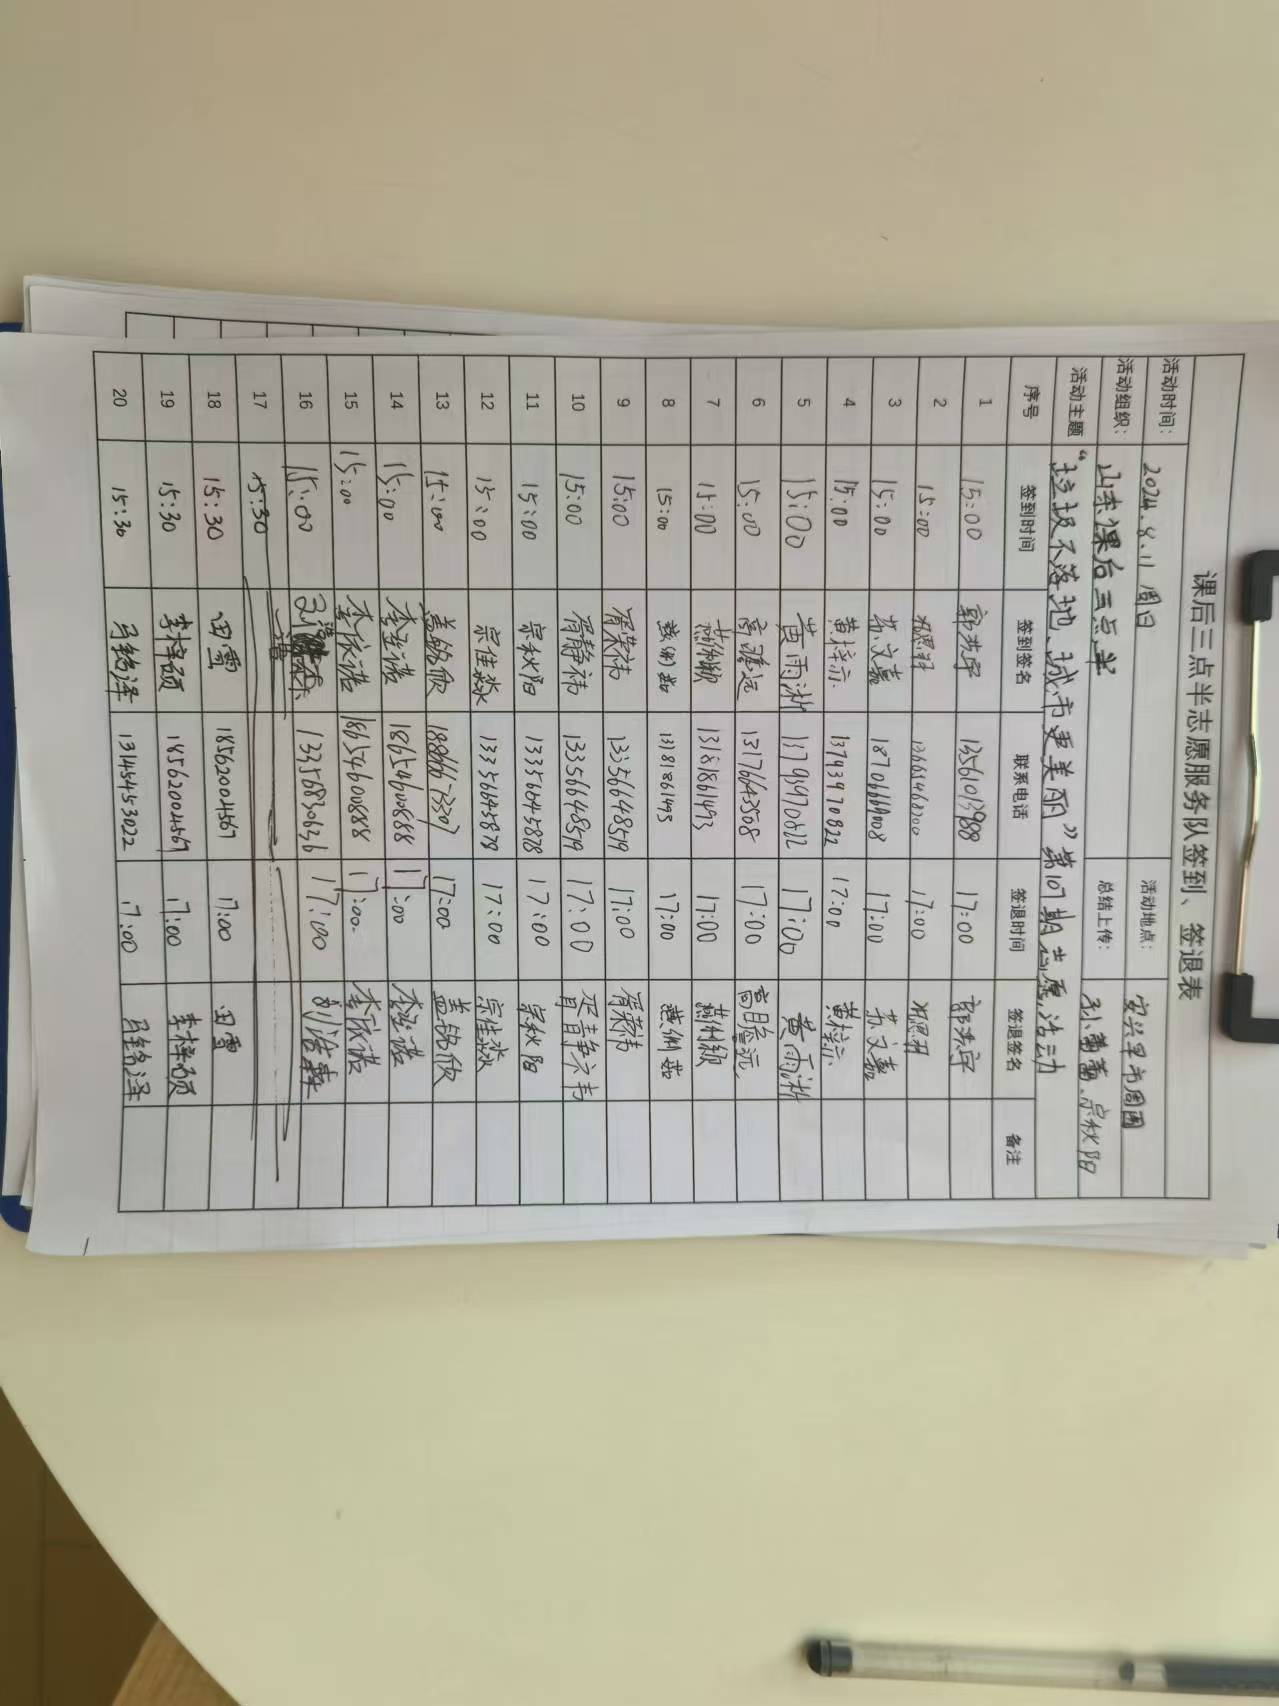 课后三点半志愿服务队签到、签退表
活动时间： 2024.8.11 周日 活动地点： 安兴早市周围
活动组织： 山东课后三点半 总结上传： 孙蕾蕾 宗秋阳
活动主题 “垃圾不落地、城市更美丽”第107期志愿活动
序号 签到时间 签到签名 联系电话 签退时间 签退签名 备注
1 15:00 郭洪宇 13561013988 17:00 郭洪宇
2 15:00 17:00
3 15:00 苏文嘉 18706669008 17:00 苏文嘉
4 15:00 黄梓示 13793970822 17:00 黄梓示
5 15:00 黄雨淅 13793970822 17:00 黄雨淅
6 15:00 高瞻远 13176643508 17:00 高瞻远
7 15:00 燕州颖 13181861493 17:00 燕州颖
8 15:00 燕州茹 13181861493 17:00 燕州茹
9 15:00 胥荣祎 13356648519 17:00 胥荣祎
10 15:00 胥静祎 13356648519 17:00 胥静祎
11 15:00 宗秋阳 13356645878 17:00 宗秋阳
12 15:00 宗佳淼 13356645878 17:00 宗佳淼
13 15:00 盖铭欣 18866673307 17:00 盖铭欣
14 15:00 李丞诺 18654600888 17:00 李丞诺
15 15:00 李依诺 18654600888 17:00 李依诺
16 15:00 13356830636 17:00 刘浩霖
17 15:30
18 15:30 田雪 18562004567 17:00 田雪
19 15:30 李梓硕 18562004567 17:00 李梓硕
20 15:30 马铭泽 13145453022 17:00 马铭泽